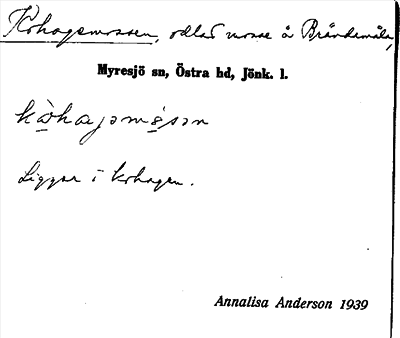 Kohagsmossen, odlad mosse å Brändemåla,
Myresjö sn, Östra hd, Jönk. l.
Ligger i kohagen.
Annalisa Anderson 1939